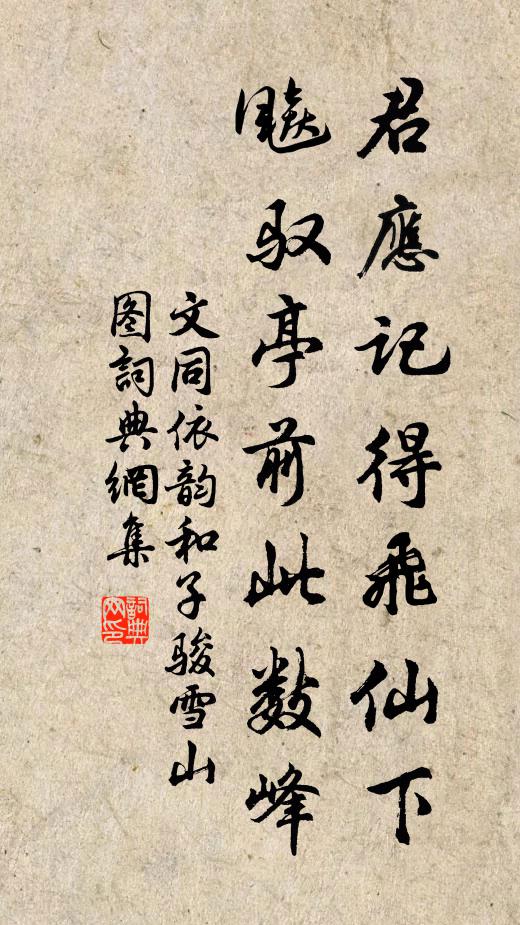 君應記得飛仙下
飈驭亭前此数峰
文同依韵和子骏雪山
图詞典網集
詞典
网印